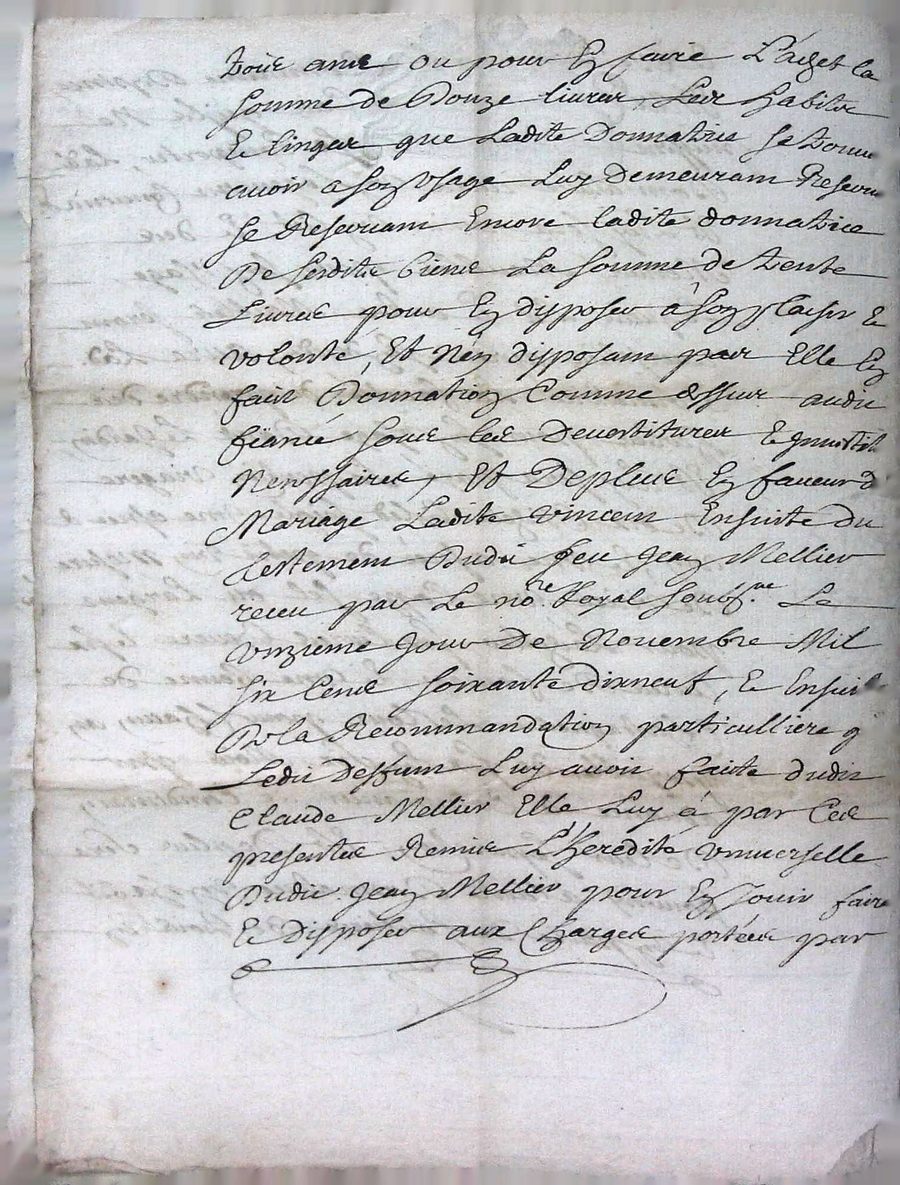 trois ans ou pour en faire l'achet la
somme de Douze livres, Les habits
et linges que Ladite Donnatrice se trouve
avoir a son usage Luy Demeurant Reservé
se Reservant Encore ladite donnatrice
De sesdits biens La somme de trente
Livres pour En disposer à son plaisir et
volonté, Et N'en disposant par Elle En
fait Donnation Comme dessus audit
fiancé sous les Devestitures et Investit
Nenssaires, Et Deplus En faveur d
Mariage Ladite Vincent Ensuite du
testement Dudit feu Jean Mellier
receu par Le no.re Royal soubs.né Le
vnzieme Jour De Novembre Mil
six Cens soixante dixneuf, et Ensuit
De la Recommandation particulliere q
Ledit Deffunt Luy avoir faite dudit
Claude Mellier Elle Luy à par Ces
presentes Remis L'heredité vniverselle
Dudit Jean Mellier pour En Jouir faire
Et disposer aux Charges portées par